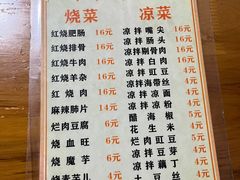 烧菜
红烧肥肠 16元
红烧排骨 16元
红烧牛肉 16元
红烧羊杂 16元
红烧肉 16元
麻辣肺片 14元
烂肉豆腐 6元
烧血旺 6元
烧魔芋 6元
凉菜
凉拌嘴尖 16元
凉拌肠头 16元
凉拌剔骨肉 16元
凉拌白肉 16元
凉拌豇豆 4元
凉拌海带丝 4元
凉拌凉面 4元
凉拌凉粉 4元
醋海椒 2元
花生米 4元
烂肉豇豆 5元
凉拌豆芽 4元
凉拌藕丁 4元